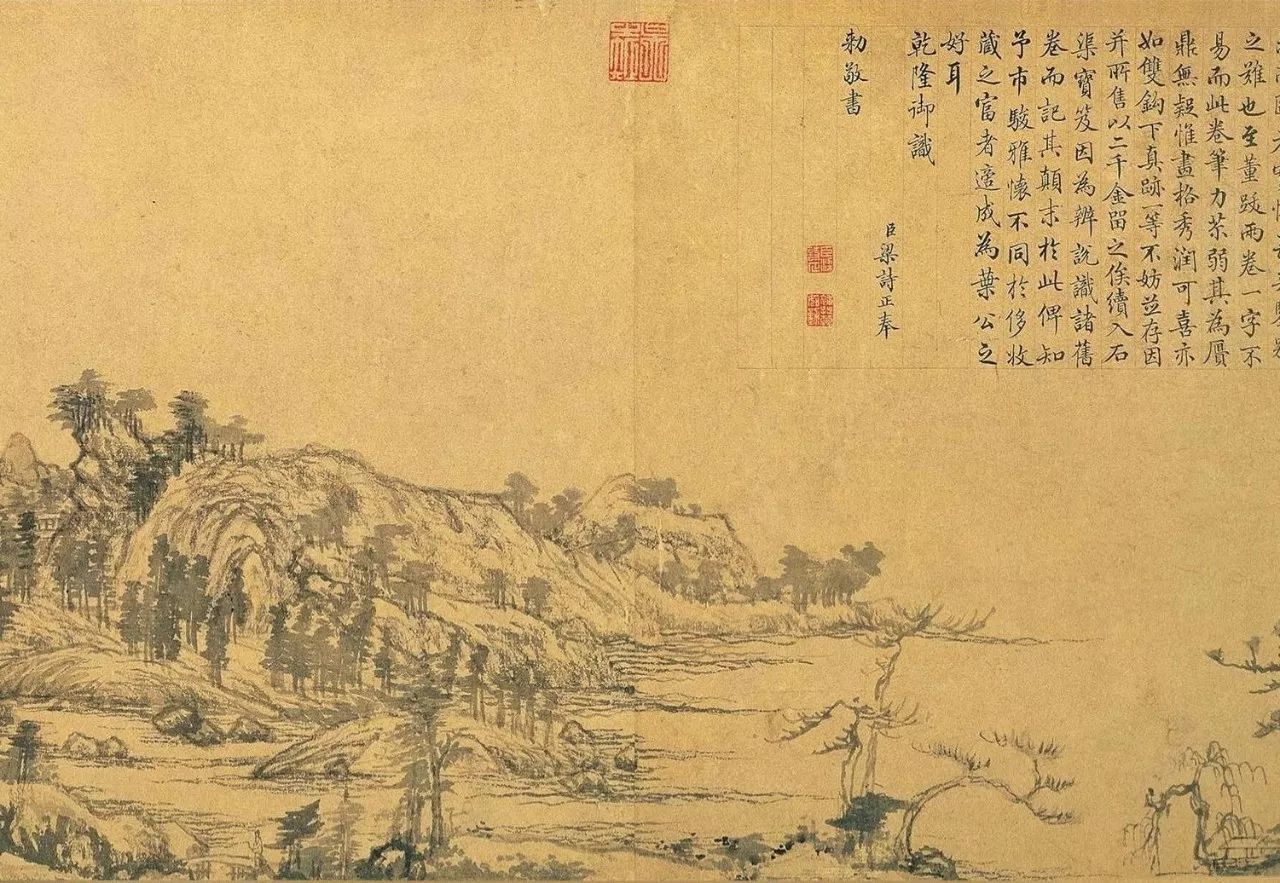 之難也至董跋兩卷一字不
易而此卷筆力苶弱其為贗
鼎無疑惟畫格秀潤可喜亦
如雙鈎下真跡一等不妨並存因
并所售以二千金留之俟續入石
渠寶笈因為辨說識諸舊
卷而記其顛末於此俾知
予市駿雅懷不同於侈收
藏之富者適成為葉公之
好耳
乾隆御識
臣梁詩正奉
勅敬書